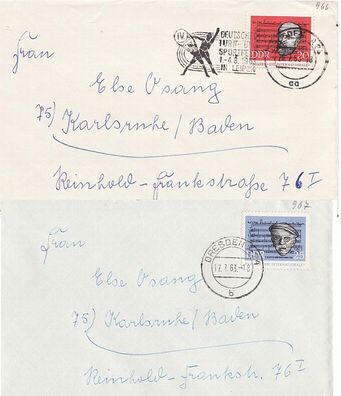 966
IV.
DEUTSCHES
TURN- U.
SPORTFEST
1.-4.8.
IN LEIPZIG
DDR 20
aa
Frau
Else Osang
75) Karlsruhe/Baden
Reinhold-Frankstraße 76 I
967
DRESDEN
17.7.63.-18
b
25
Frau
Else Osang
75) Karlsruhe/Baden
Reinhold-Frankstr. 76 I